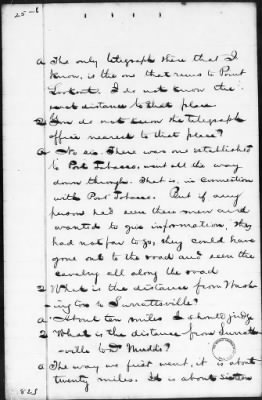 25-1
A The only telegraph there that I
know, is the one that runs to Point
Lookout. I do not know the
exact distance to that place
Q You do not know the telegraph
office nearest to that place?
A No sir. There was one established
to Port Tobacco, went all the way
down through. That is, in connection
with Port Tobacco. But if any
person had seen these men and
wanted to give information, they
had not far to go, they could have
gone out to the road and seen the
cavalry all along the road
Q What is the distance from Wash
ington to Surrattsville?
A About ten miles I should judge
Q What is the distance from Surratt
sville to Dr Mudds?
A The way we first went, it is about
twenty miles. It is about sixteen
823